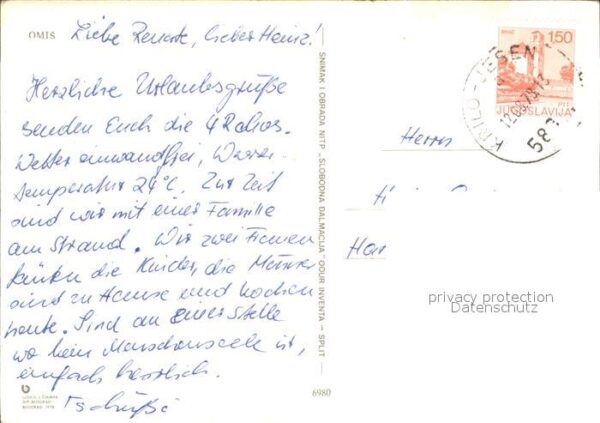 OMIS
Liebe Renate, lieber Heinz!
Herzliche Urlaubsgrüße
senden Euch die 4
Wetter einwandfrei, Wasser-
temperatur 24°C. Zur Zeit
sind wir mit einer Familie
am Strand. Wir zwei
die Kinder, die Männer
sind zu Hause und kochen
heute. Sind an einer Stelle
wo kein Menschenseele ist,
einfach herrlich.
Tschüß
SNIMAK I OBRADA NITP „SLOBODNA DALMACIJA" OOUR INVENTA – SPLIT –
6980
1,50
JUGOSLAVIJA
KRILO-JESEN
58
Herrn
privacy protection
Datenschutz